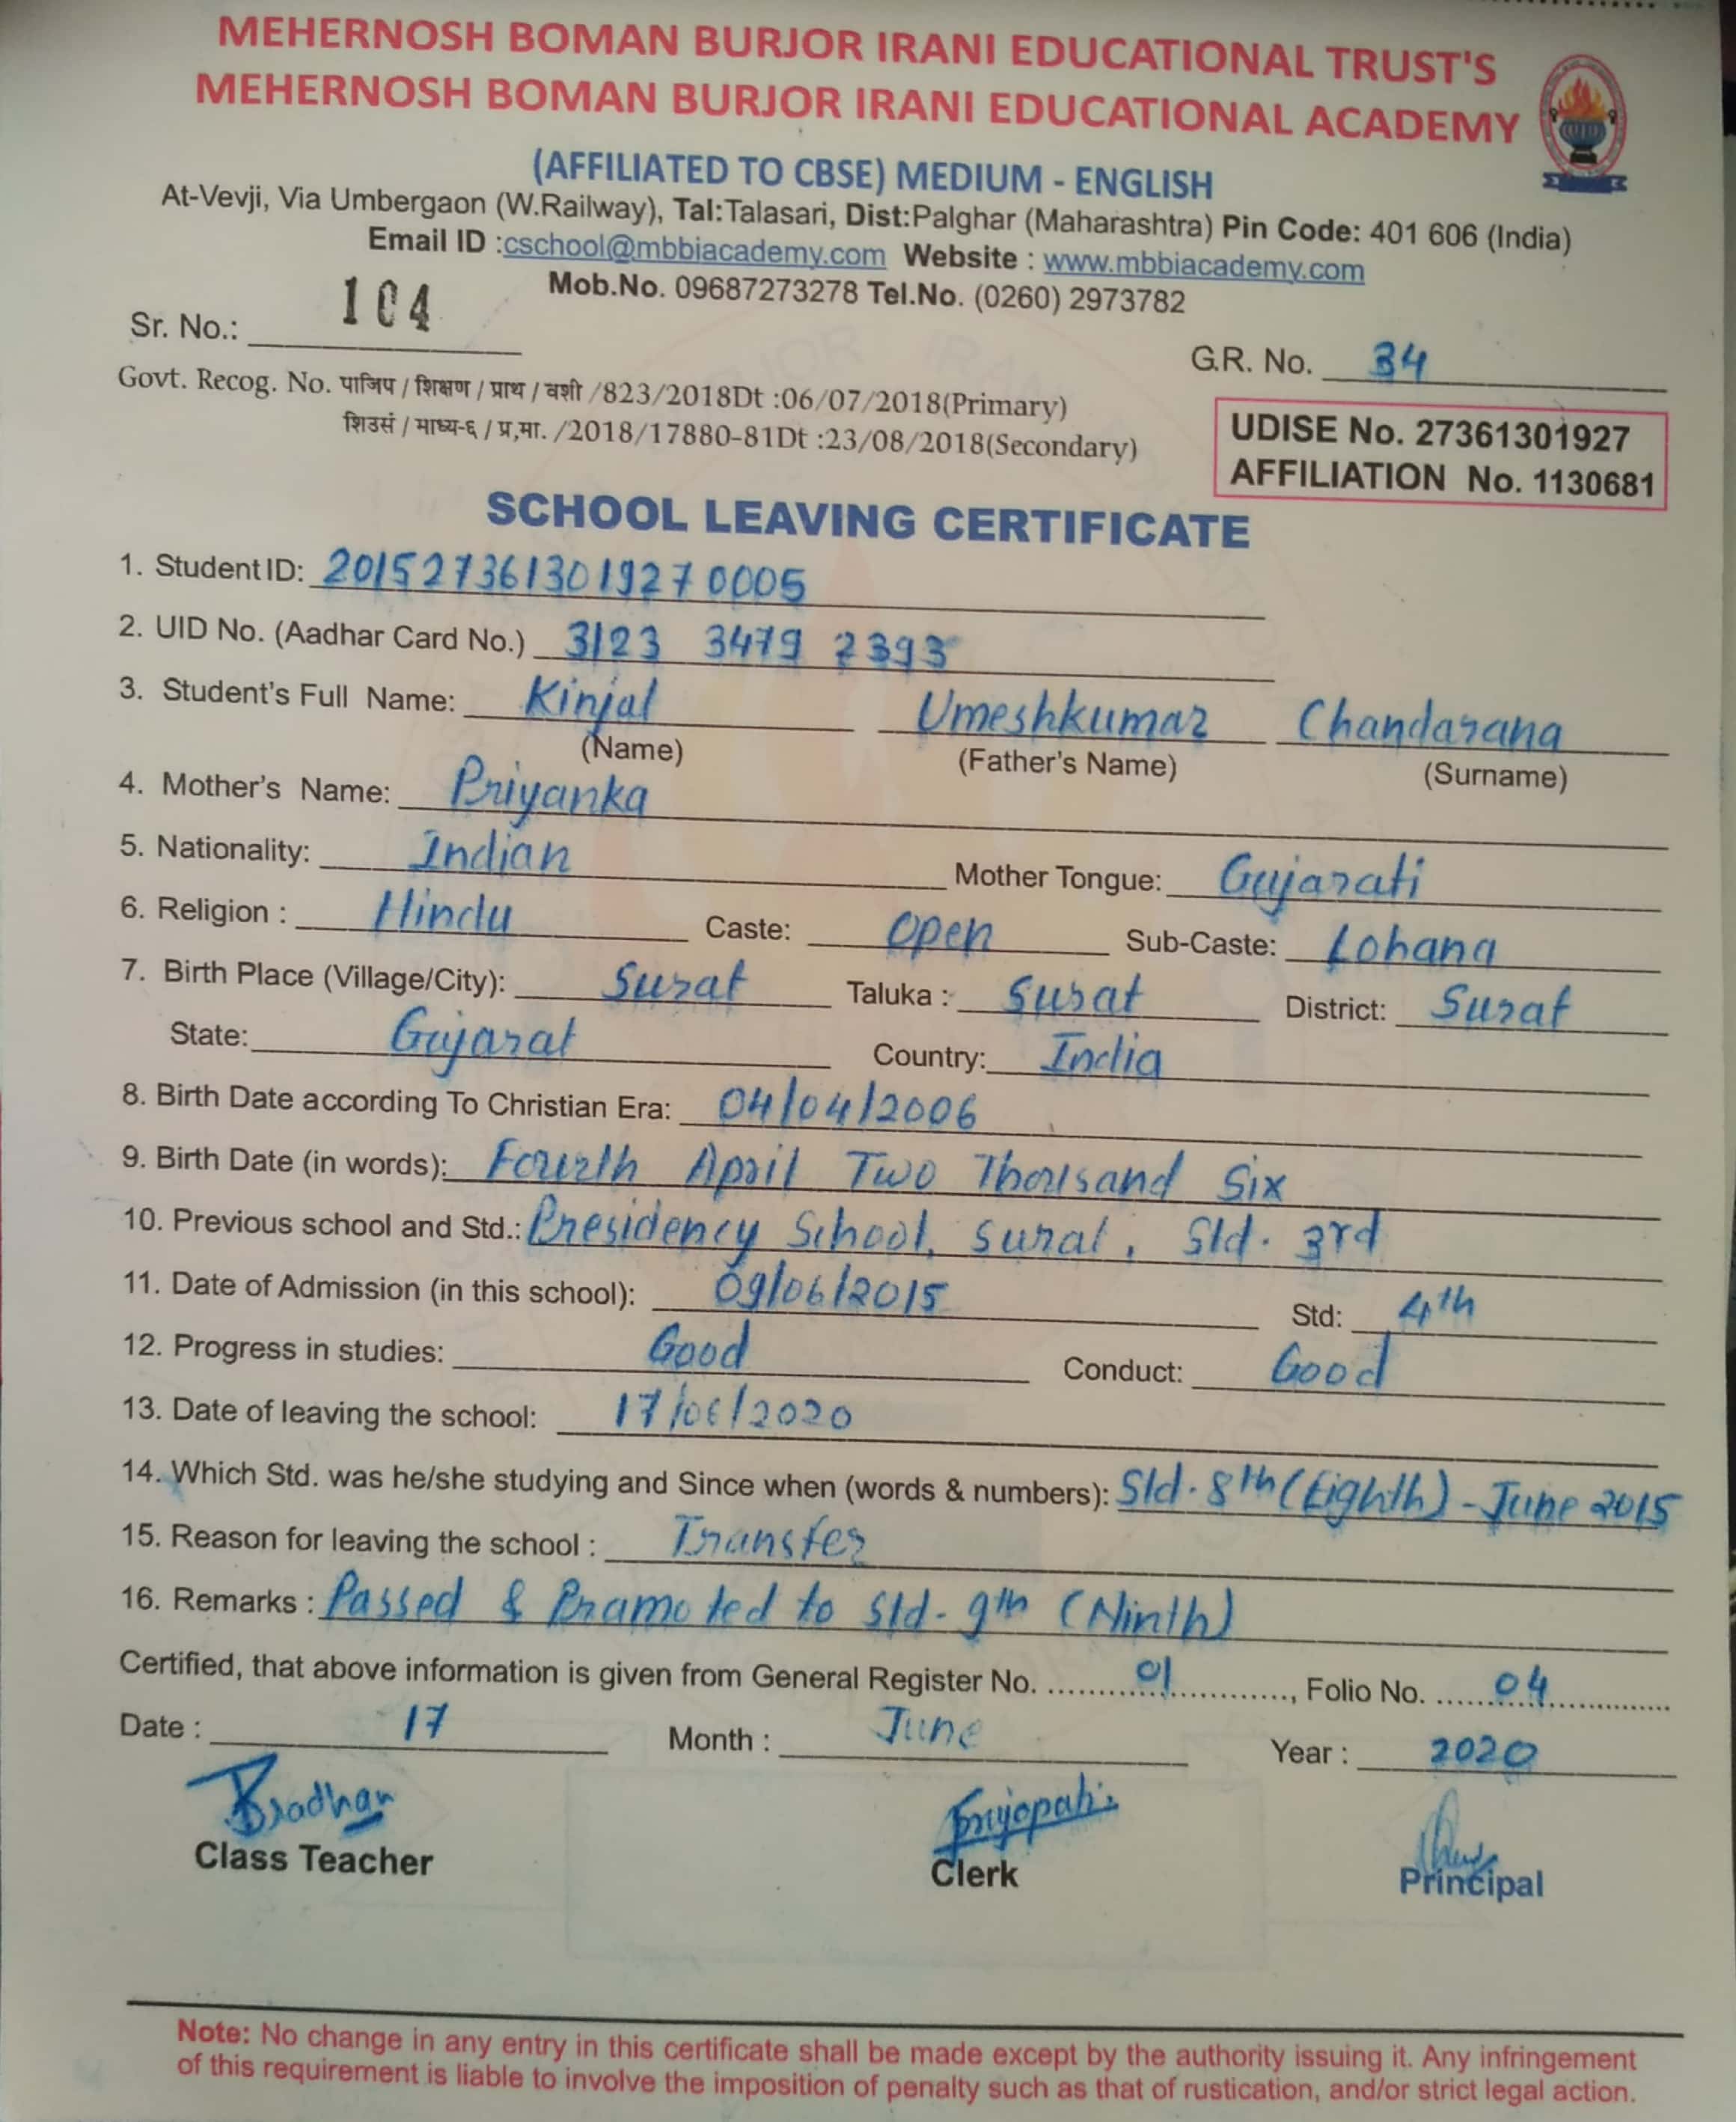 MEHERNOSH BOMAN BURJOR IRANI EDUCATIONAL TRUST'S
MEHERNOSH BOMAN BURJOR IRANI EDUCATIONAL ACADEMY
(AFFILIATED TO CBSE) MEDIUM - ENGLISH
At-Vevji, Via Umbergaon (W.Railway), Tal:Talasari, Dist:Palghar (Maharashtra) Pin Code: 401 606 (India)
Email ID :cschool@mbbiacademy.com Website : www.mbbiacademy.com
Mob.No. 09687273278 Tel.No. (0260) 2973782
Sr. No.: 104
G.R. No. 34
Govt. Recog. No. पाजिप / शिक्षण / प्राथ / वशी /823/2018Dt :06/07/2018(Primary)
शिउसं / माध्य-६ / प्र,मा. /2018/17880-81Dt :23/08/2018(Secondary)
UDISE No. 27361301927
AFFILIATION No. 1130681
SCHOOL LEAVING CERTIFICATE
1. Student ID: 2015273613019270005
2. UID No. (Aadhar Card No.) 3123 3479 2393
3. Student's Full Name: Kinjal Umeshkumar Chandarana
(Name) (Father's Name) (Surname)
4. Mother's Name: Priyanka
5. Nationality: Indian Mother Tongue: Gujarati
6. Religion : Hindu Caste: Open Sub-Caste: Lohana
7. Birth Place (Village/City): Surat Taluka : Surat District: Surat
State: Gujarat Country: India
8. Birth Date according To Christian Era: 04/04/2006
9. Birth Date (in words): Fourth April Two Thousand Six
10. Previous school and Std.: Presidency School, Surat, Std. 3rd
11. Date of Admission (in this school): 09/06/2015 Std: 4th
12. Progress in studies: Good Conduct: Good
13. Date of leaving the school: 17/06/2020
14. Which Std. was he/she studying and Since when (words & numbers): Std. 8th (Eighth) - June 2015
15. Reason for leaving the school : Transfer
16. Remarks : Passed & Pramoted to Std- 9th (Ninth)
Certified, that above information is given from General Register No. 01, Folio No. 04
Date : 17 Month : June Year : 2020
Pradhan Prajapati
Class Teacher Clerk Principal
Note: No change in any entry in this certificate shall be made except by the authority issuing it. Any infringement
of this requirement is liable to involve the imposition of penalty such as that of rustication, and/or strict legal action.